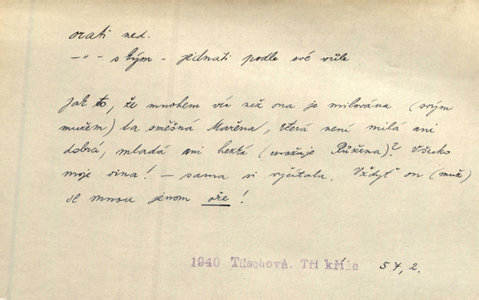 orati ned.
–„– s kým - jednati podle své vůle
Jak to, že mnohem víc než ona je milována (svým
mužem) ta směšná Mařena, která není milá ani
dobrá, mladá ani hezká (uvažuje Růžena)? Všecko
moje vina! – sama si vyčítala. Vždyť on (muž)
se mnou jenom oře!
1940 Tilschová. Tři kříže 54,2.